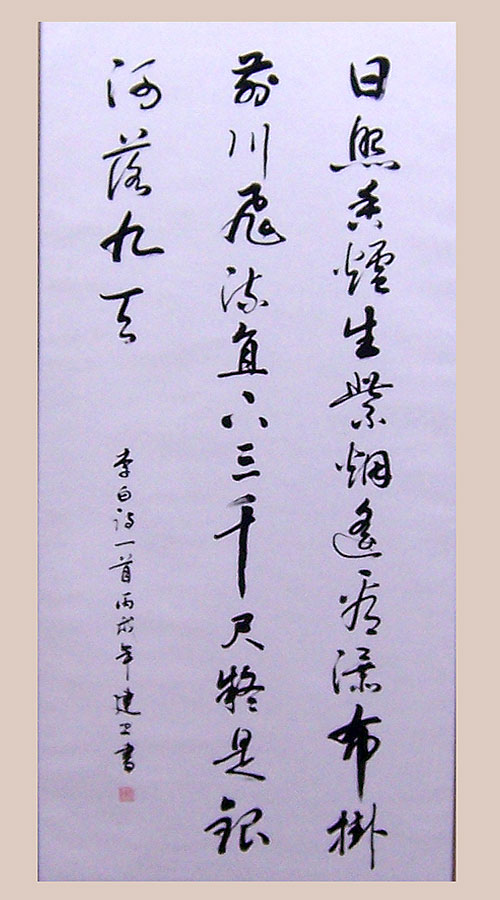 日照香爐生紫烟遙看瀑布掛
前川飛流直下三千尺疑是銀
河落九天
李白詩一首丙戌年建卫書